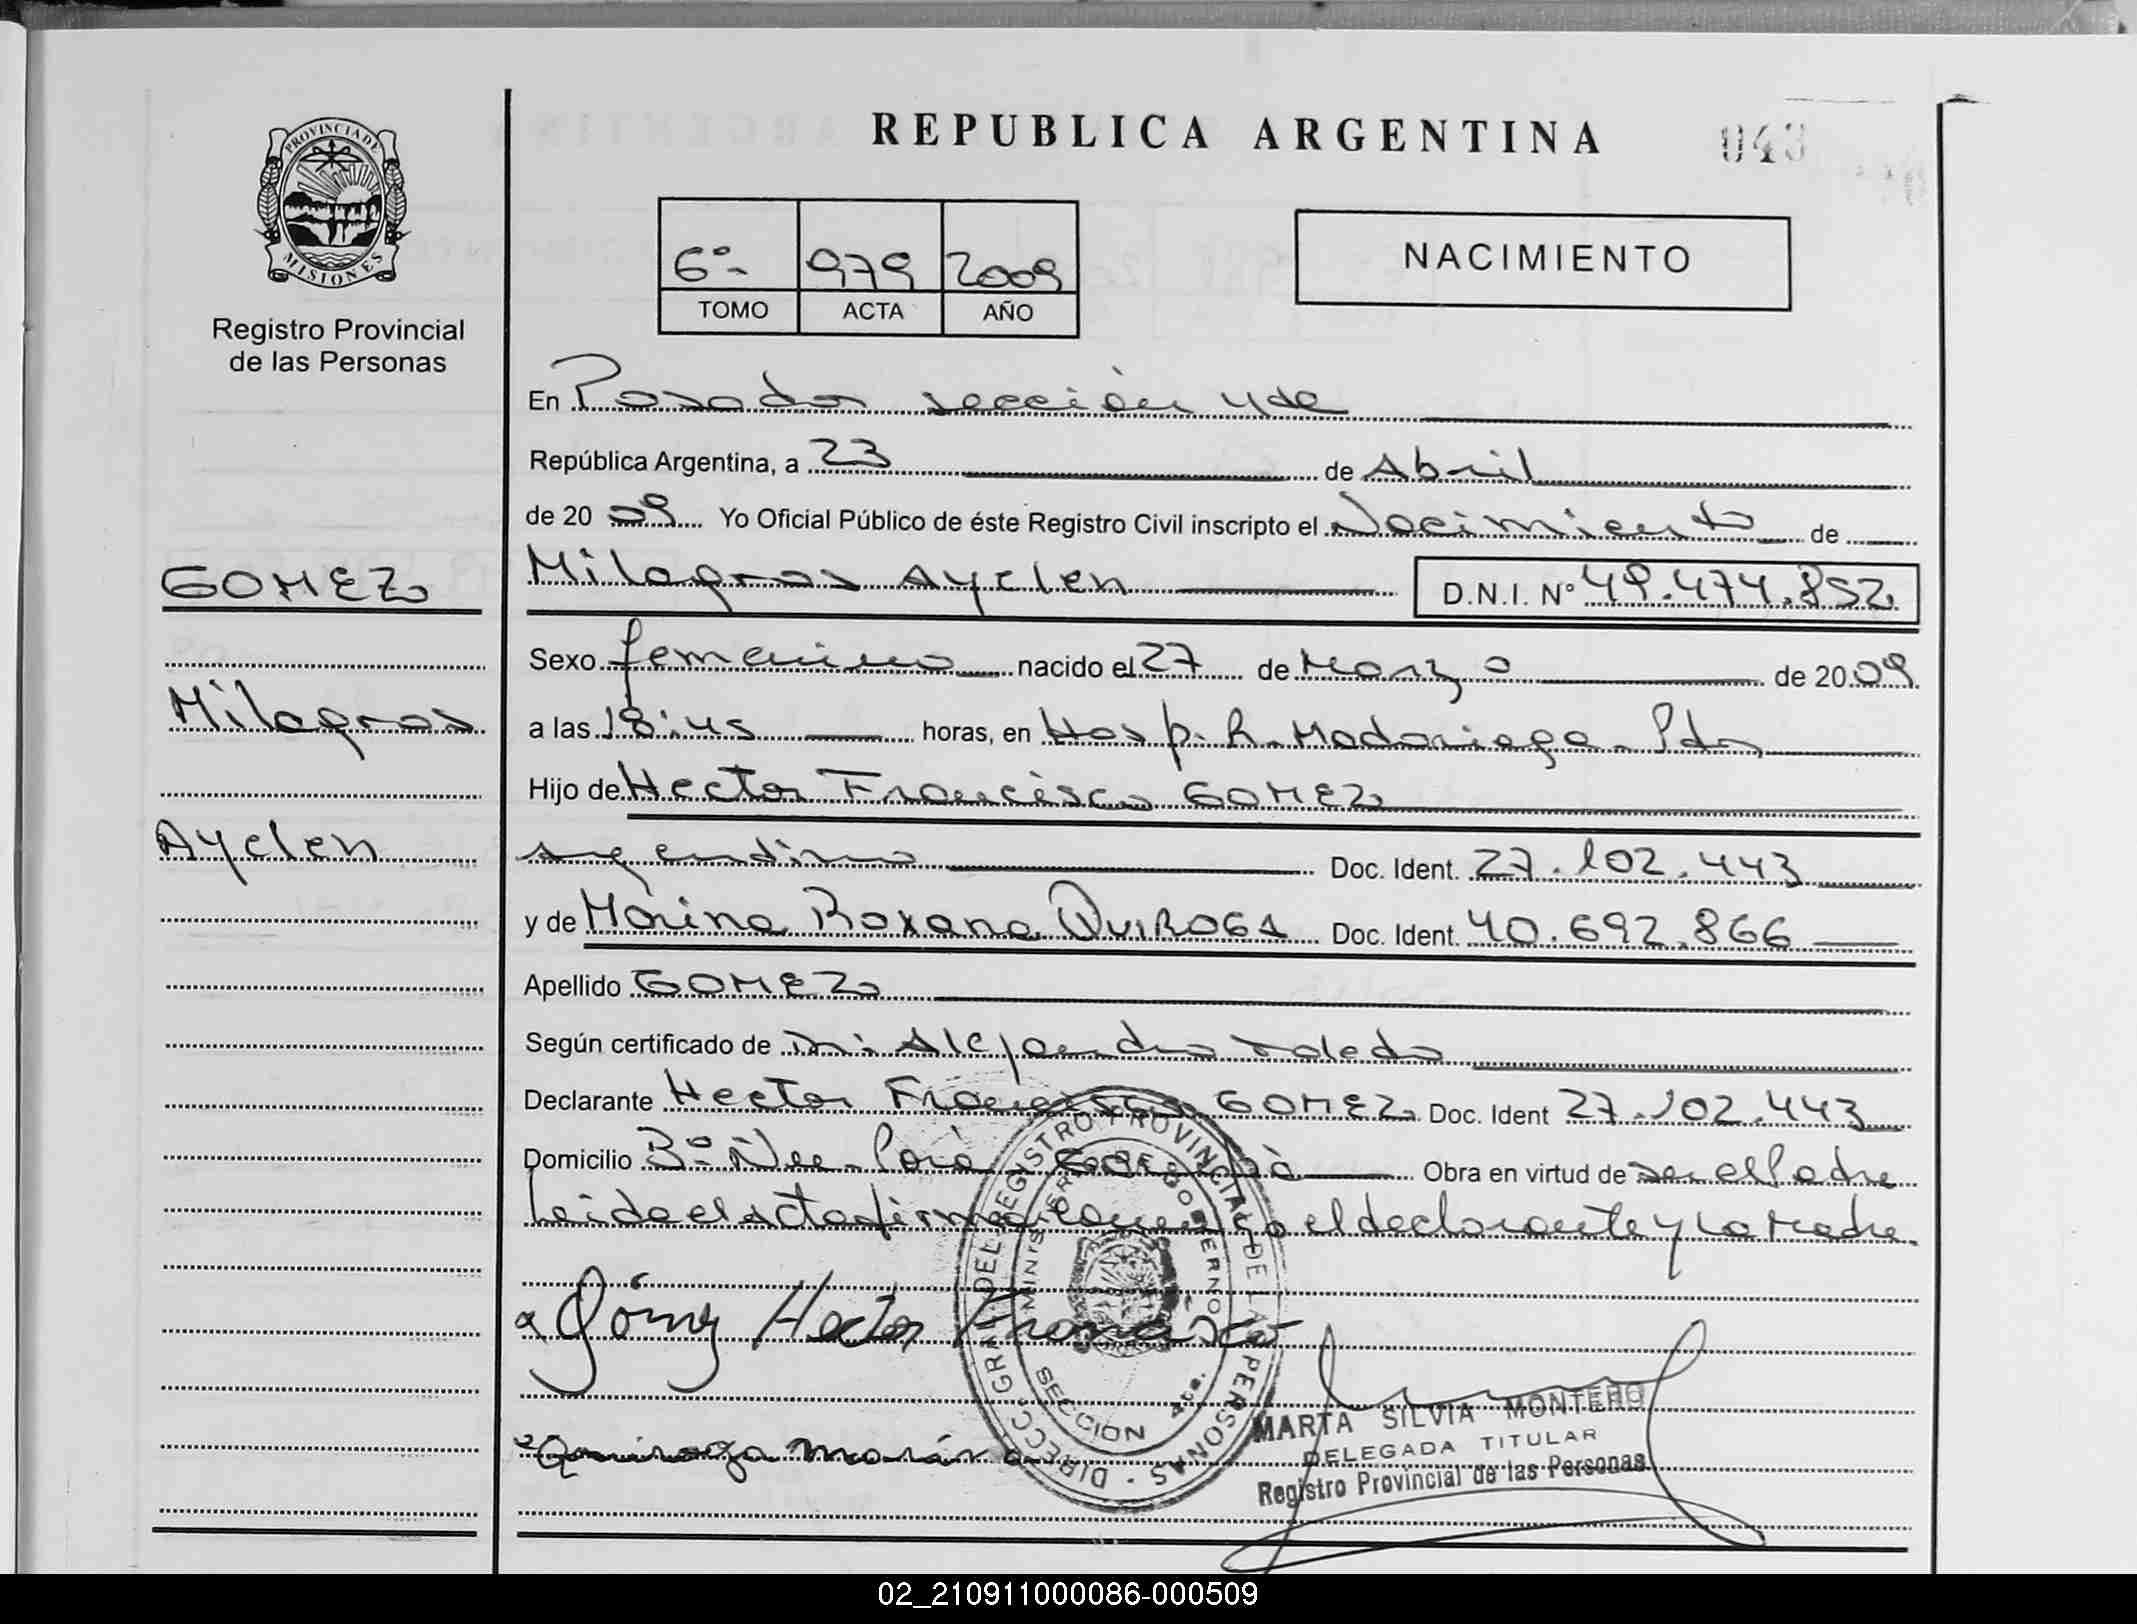 REPUBLICA ARGENTINA
043
PROVINCIA DE
MISIONES
Registro Provincial
de las Personas
6º- 979 2009
TOMO ACTA AÑO
NACIMIENTO
En Posadas sección 4ta
República Argentina, a 23 de Abril
de 2009 Yo Oficial Público de éste Registro Civil inscripto el Nacimiento de
GOMEZ
Milagros Ayelen D.N.I. Nº 49.474.852
Sexo femenino nacido el 27 de Marzo de 2009
Milagros
a las 18:45 horas, en Hosp. R. Madariaga - Pdas
Hijo de Hector Francisco GOMEZ
Ayelen
argentino Doc. Ident. 27.102.443
y de Marina Roxana QUIROGA Doc. Ident. 40.692.866
Apellido GOMEZ
Según certificado de Dr. Alejandro Toledo
Declarante Hector Francisco GOMEZ Doc. Ident 27.102.443
Domicilio Bº Ñee-Porá Obra en virtud de ser el Padre
Leida el acta firma conmigo el declarante y la Madre.
Gómez Hector Francisco
Quiroga Marina
DIRECC. GRAL. DEL REGISTRO PROVINCIAL DE LAS PERSONAS
MINISTERIO DE GOBIERNO
SECCION 4ta.
MARTA SILVIA MONTERO
DELEGADA TITULAR
Registro Provincial de las Personas
02_210911000086-000509